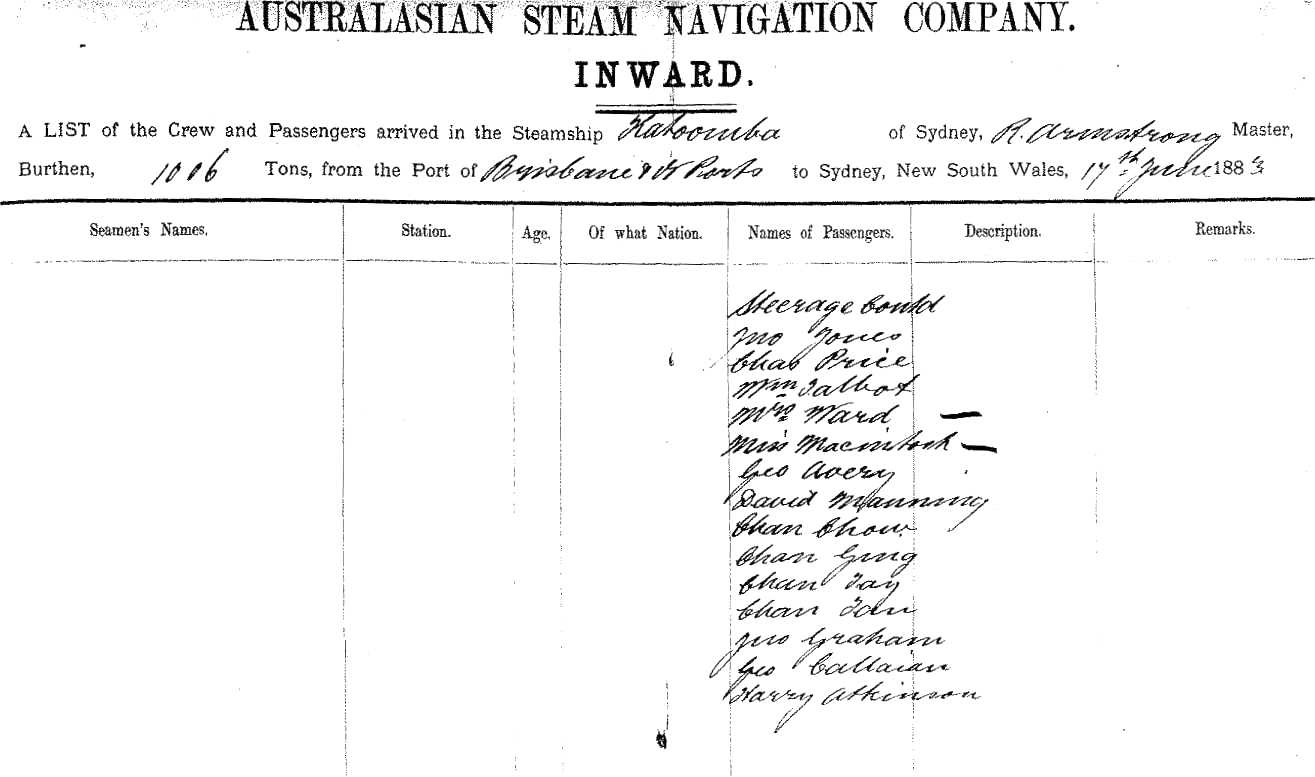 AUSTRALASIAN STEAM NAVIGATION COMPANY.
INWARD.
A LIST of the Crew and Passengers arrived in the Steamship Katoomba of Sydney, R. Armstrong Master,
Burthen, 1006 Tons, from the Port of Brisbane & Ports to Sydney, New South Wales, 17th June 1883
Seamen's Names. Station. Age. Of what Nation. Names of Passengers. Description. Remarks.
Steerage Contd
Jno Jones
Chas Price
Wm Talbot
Mrs Ward —
Miss Macintosh —
Geo Avery
David Manning
Chan Chow
Chan Ging
Chan Tay
Chan Tan
Jno Graham
Geo Callaian
Harry Atkinson